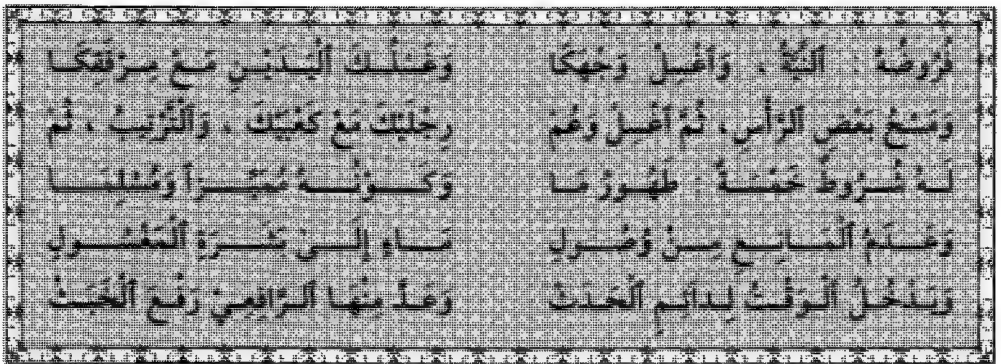 فُرُوضُهُ : اَلنِّيَّةُ ، وَاَغْسِلْ وَجْهَكَا وَغَسْلُكَ اَلْيَدَيْنِ مَعْ مِرْفَقِكَا
وَمَسْحُ بَعْضِ اَلرَّأْسِ، ثُمَّ اَغْسِلْ وَعُمْ رِجْلَيْكَ مَعْ كَعْبَيْكَ ، وَاَلتَّرْتِيبُ ، ثُمْ
لَهُ شُرُوطٌ خَمْسَةٌ : طَهُورُ مَا وَكَوْنُهُ مُمَيِّزاً وَمُسْلِمَا
وَعَدَمُ اَلْمَانِعِ مِنْ وُصُولِ مَاءٍ إِلَىٰ بَشَرَةِ اَلْمَغْسُولِ
وَيَدْخُلُ اَلْوَقْتُ لِدَائِمِ اَلْحَدَثْ وَعَدَّ مِنْهَا اَلرَّافِعِيْ رَفْعَ اَلْخَبَثْ